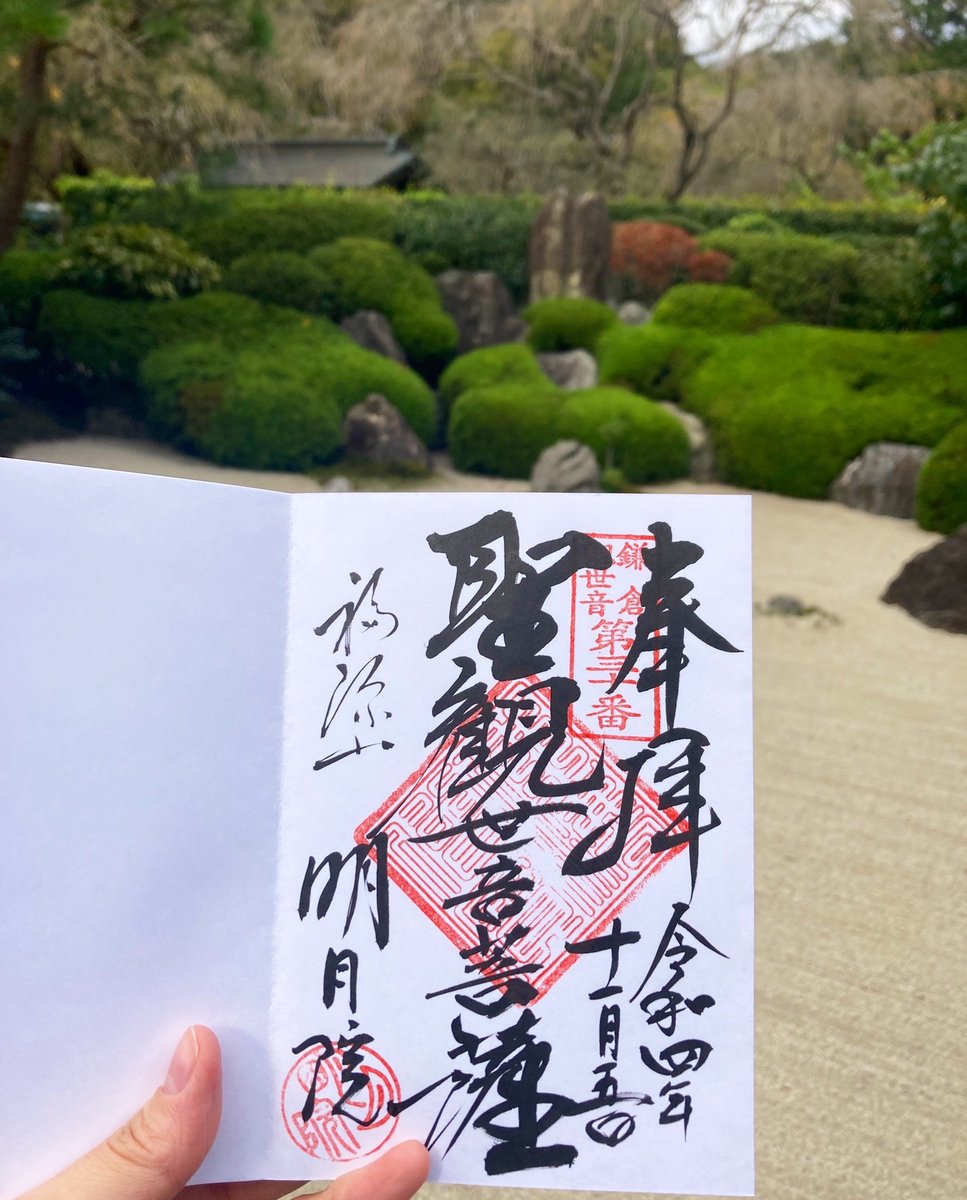 奉拝
令和四年
十一月五日
鎌倉
観世音
第三十番
聖観世音菩薩
福源山
明月院